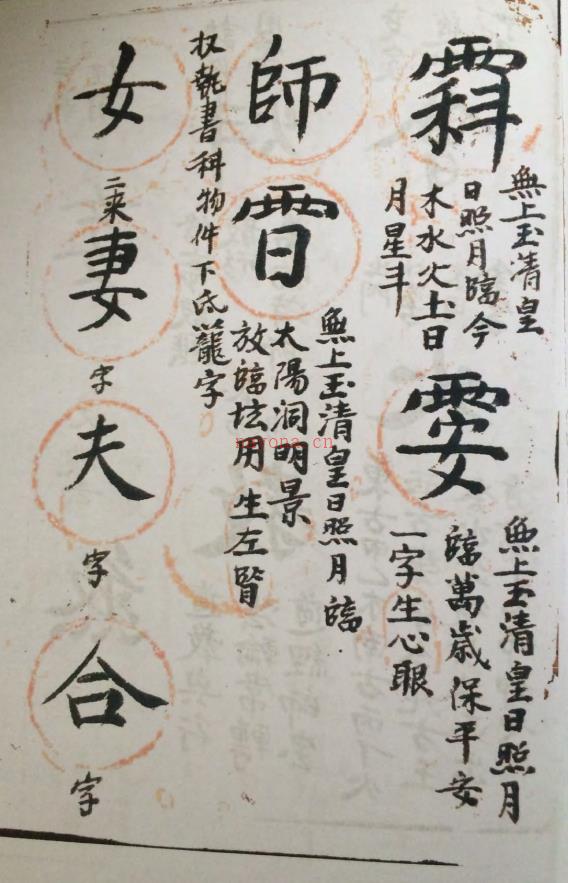 無上玉清皇
日照月臨今
木水火土日
月星斗
無上玉清皇日照月
臨萬歲保平安
一字生心眼
師
無上玉清皇日照月臨
太陽洞明景
放臨坛用生左腎
收執書科物件下底籠字
女
二来
妻
字
夫
字
合
字
nayona.cn